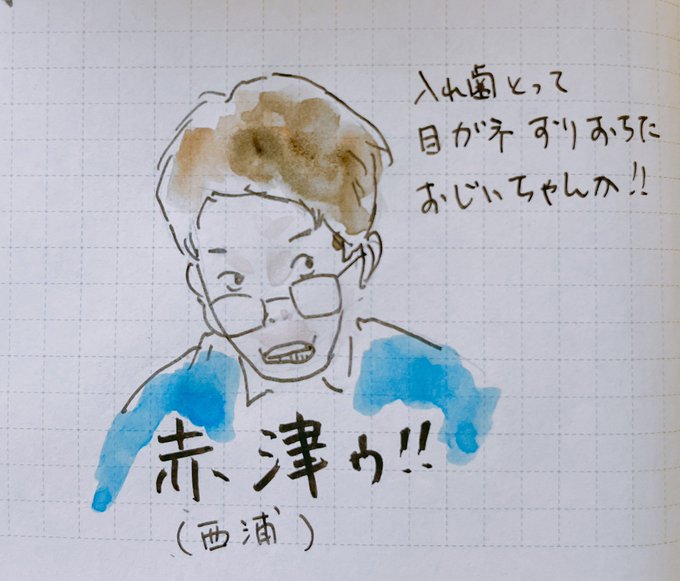 入れ歯とって
目がネずりおちた
おじいちゃんか!!
赤津ゥ!!
(西浦)